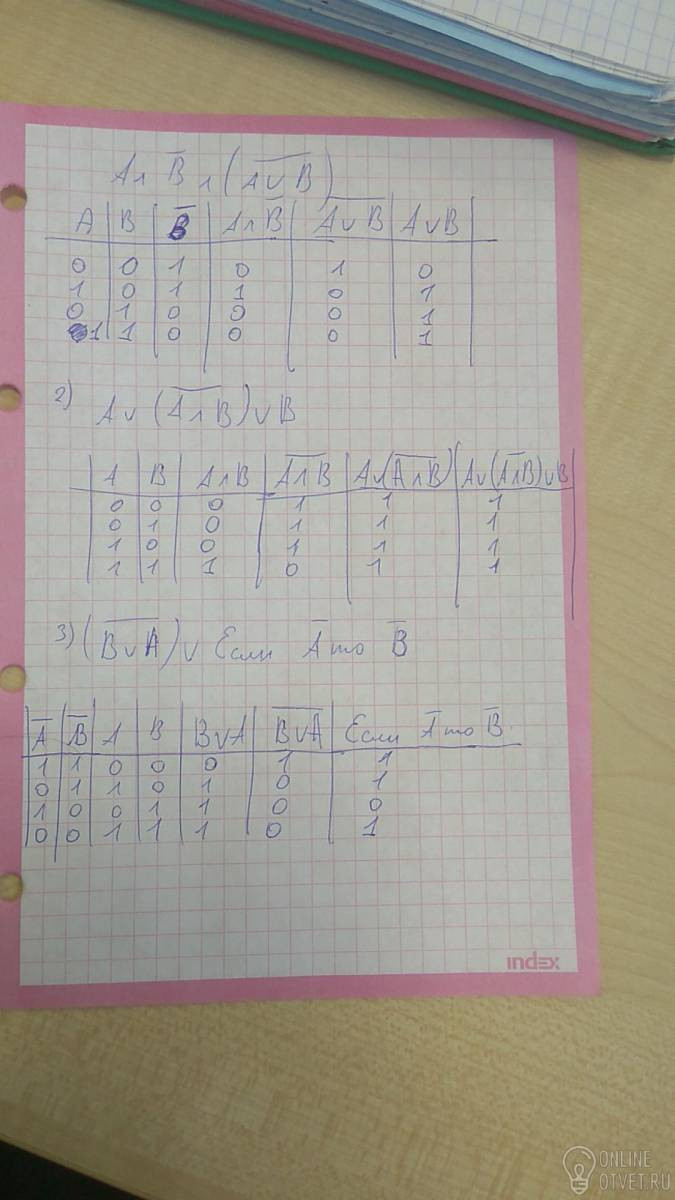 A ∧ B̅ ∧ (A̅ ̅∨̅ ̅B̅)
A B B̅ A ∧ B̅ A̅ ̅∨̅ ̅B̅ A ∨ B
0 0 1 0 1 0
1 0 1 1 0 1
0 1 0 0 0 1
1 1 0 0 0 1
2) A ∨ (A̅ ̅∧̅ ̅B̅) ∨ B
A B A ∧ B A̅ ̅∧̅ ̅B̅ A ∨ (A̅ ̅∧̅ ̅B̅) A ∨ (A̅ ̅∧̅ ̅B̅) ∨ B
0 0 0 1 1 1
0 1 0 1 1 1
1 0 0 1 1 1
1 1 1 0 1 1
3) (B̅ ̅∨̅ ̅A̅) ∨ Если A̅ то B̅
A̅ B̅ A B B ∨ A B̅ ̅∨̅ ̅A̅ Если A̅ то B̅.
1 1 0 0 0 1 1
0 1 1 0 1 0 1
1 0 0 1 1 0 0
0 0 1 1 1 0 1
index
ONLINE
OTVET.RU